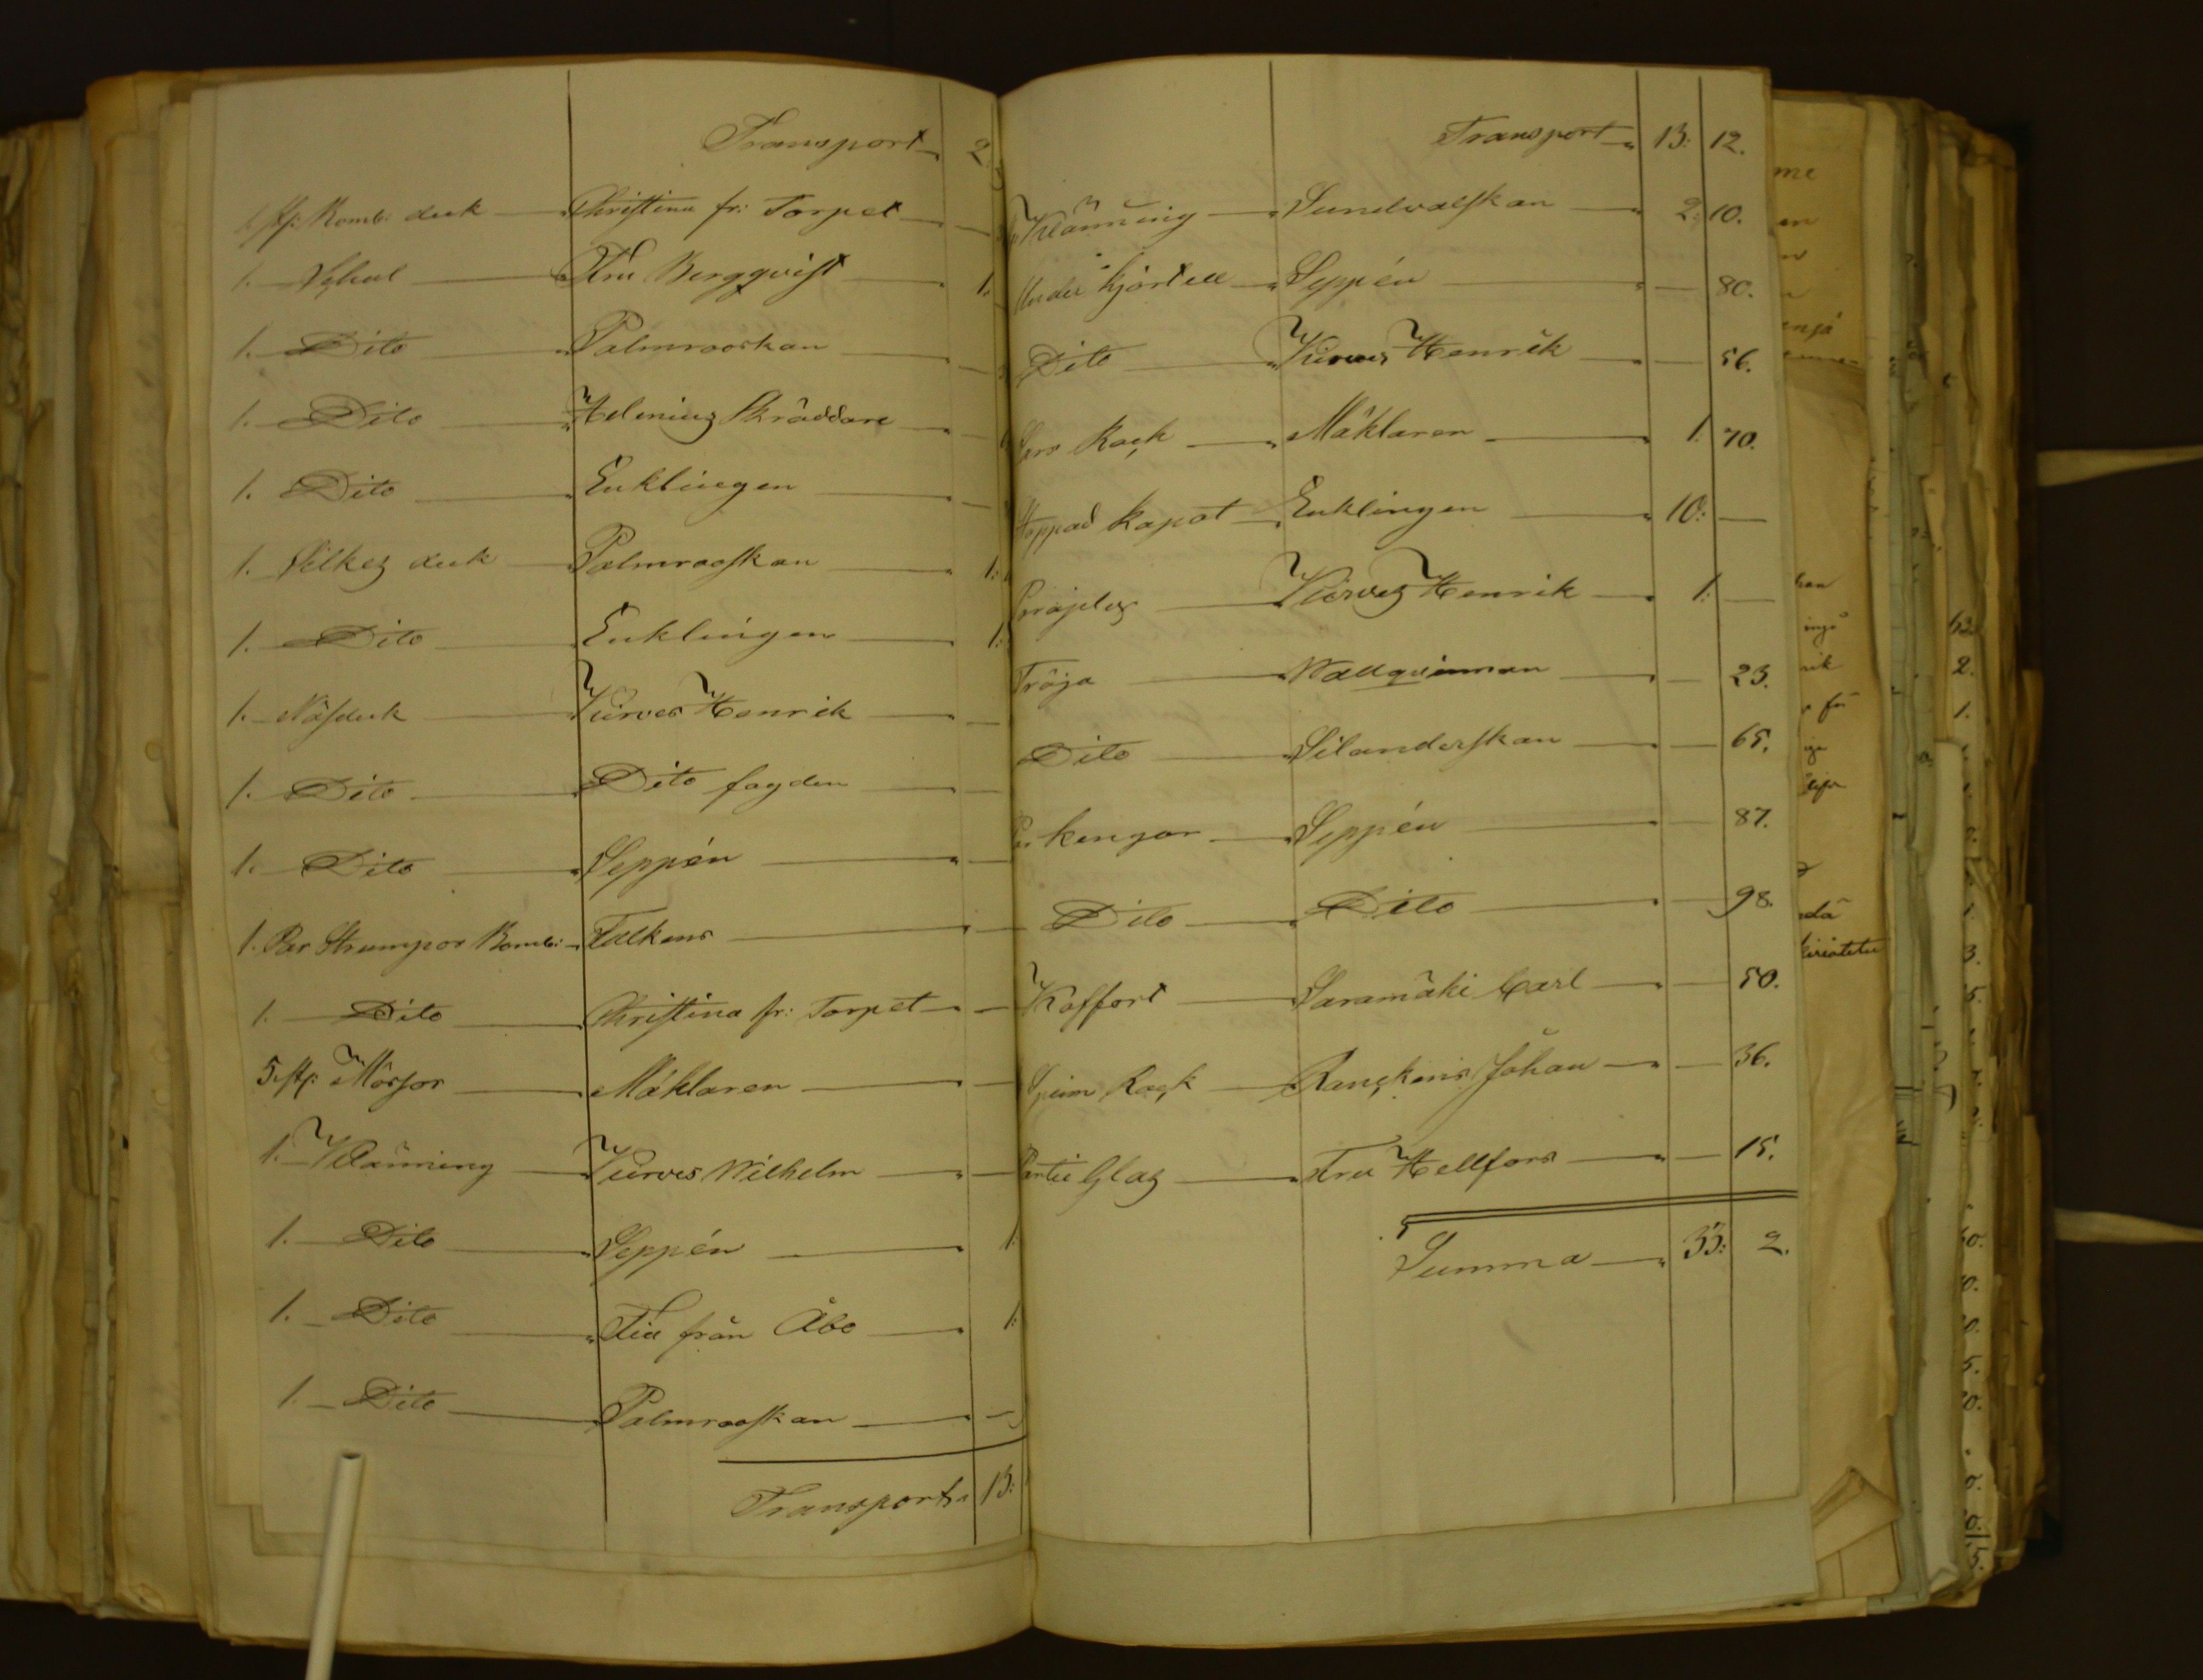 Transport 2
1 st: Bomb: duk Christina fr: Torpet
1. Schal Fru Bergqvist 1.
1. Dito Palmrooskan
1. Dito Helenius Skräddare
1. Dito Enklingen
1. Silkes duk Palmrooskan 1:
1. Dito Enklingen 1:
1. Näsduk Kurves Henrik
1. Dito Dito fogden
1. Dito Seppén
1. Par Strumpor Bomb: Falkens
1. Dito Christina fr: Torpet
5 st: Mössor Mäklaren
1. Klänning Kurves Wilhelm
1. Dito Seppén 1:
1. Dito Fia från Åbo 1:
1. Dito Palmrooskan
Transport 13:
Transport 13: 12.
Klänning Sundvalskan 2: 10.
Under kjortell Seppén 80.
Dito Kurves Henrik 56.
Rock Mäklaren 1. 70.
Stoppad kapot Enklingen 10:
Kurves Henrik 1:
Tröja Wallqvinnan 23.
Dito Silanderskan 65.
Par kengor Seppén 87.
Dito Dito 98.
Koffert Saramäki Carl 50.
Rock Johan 36.
Partie Glas Fru Hellfors 15.
Summa 33: 2.